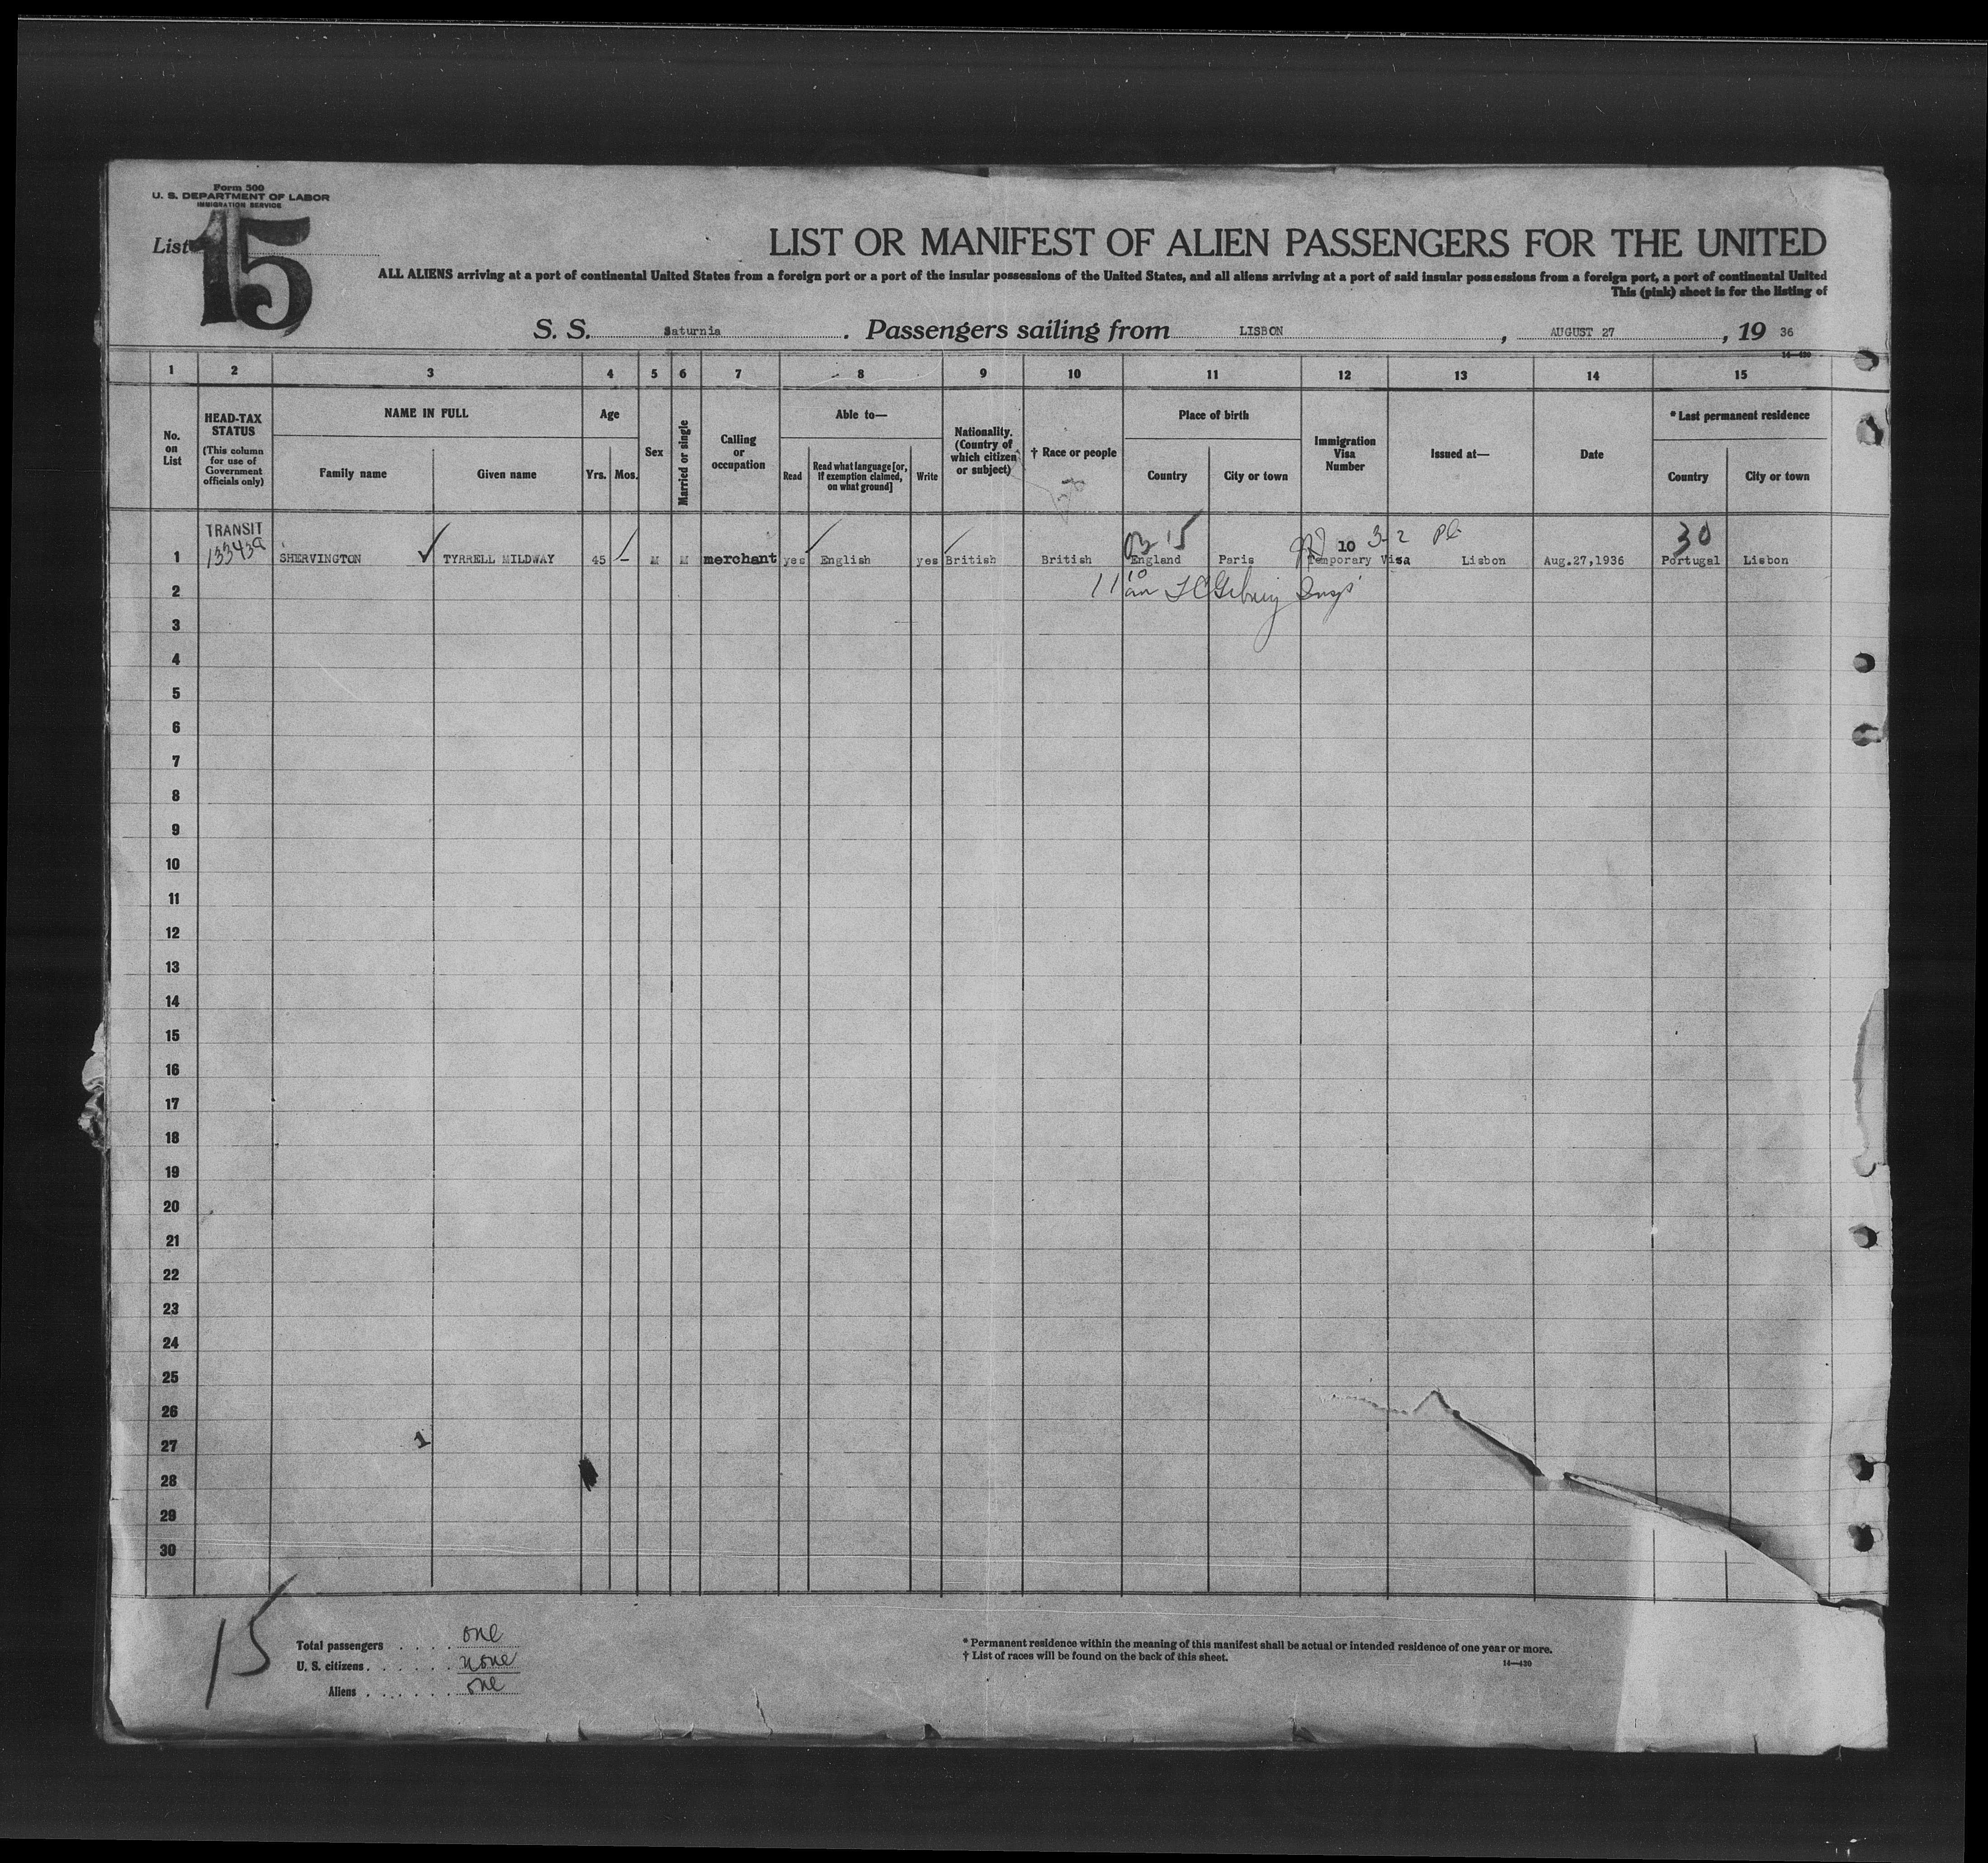 Form 500
U. S. DEPARTMENT OF LABOR
IMMIGRATION SERVICE
List 15
LIST OR MANIFEST OF ALIEN PASSENGERS FOR THE UNITED
ALL ALIENS arriving at a port of continental United States from a foreign port or a port of the insular possessions of the United States, and all aliens arriving at a port of said insular possessions from a foreign port, a port of continental United
This (pink) sheet is for the listing of
S. S. Saturnia. Passengers sailing from LISBON, AUGUST 27, 19 36
14—420
1 2 3 4 5 6 7 8 9 10 11 12 13 14 15
No. on List
HEAD-TAX STATUS
(This column for use of Government officials only)
NAME IN FULL
Family name
Given name
Age
Yrs. Mos.
Sex
Married or single
Calling or occupation
Able to—
Read
Read what language [or, if exemption claimed, on what ground]
Write
Nationality. (Country of which citizen or subject)
† Race or people
Place of birth
Country
City or town
Immigration Visa Number
Issued at—
Date
* Last permanent residence
Country
City or town
TRANSIT 15 10 3-2 30
1 133439 SHERVINGTON TYRRELL MILDWAY 45 – M M merchant yes English yes British British England Paris Temporary Visa Lisbon Aug.27,1936 Portugal Lisbon
2 11 10 am
3
4
5
6
7
8
9
10
11
12
13
14
15
16
17
18
19
20
21
22
23
24
25
26
27 1
28
29
30
15
Total passengers . . . . one
U. S. citizens . . . . . . none
Aliens . . . . . . . one
* Permanent residence within the meaning of this manifest shall be actual or intended residence of one year or more.
† List of races will be found on the back of this sheet.
14—420